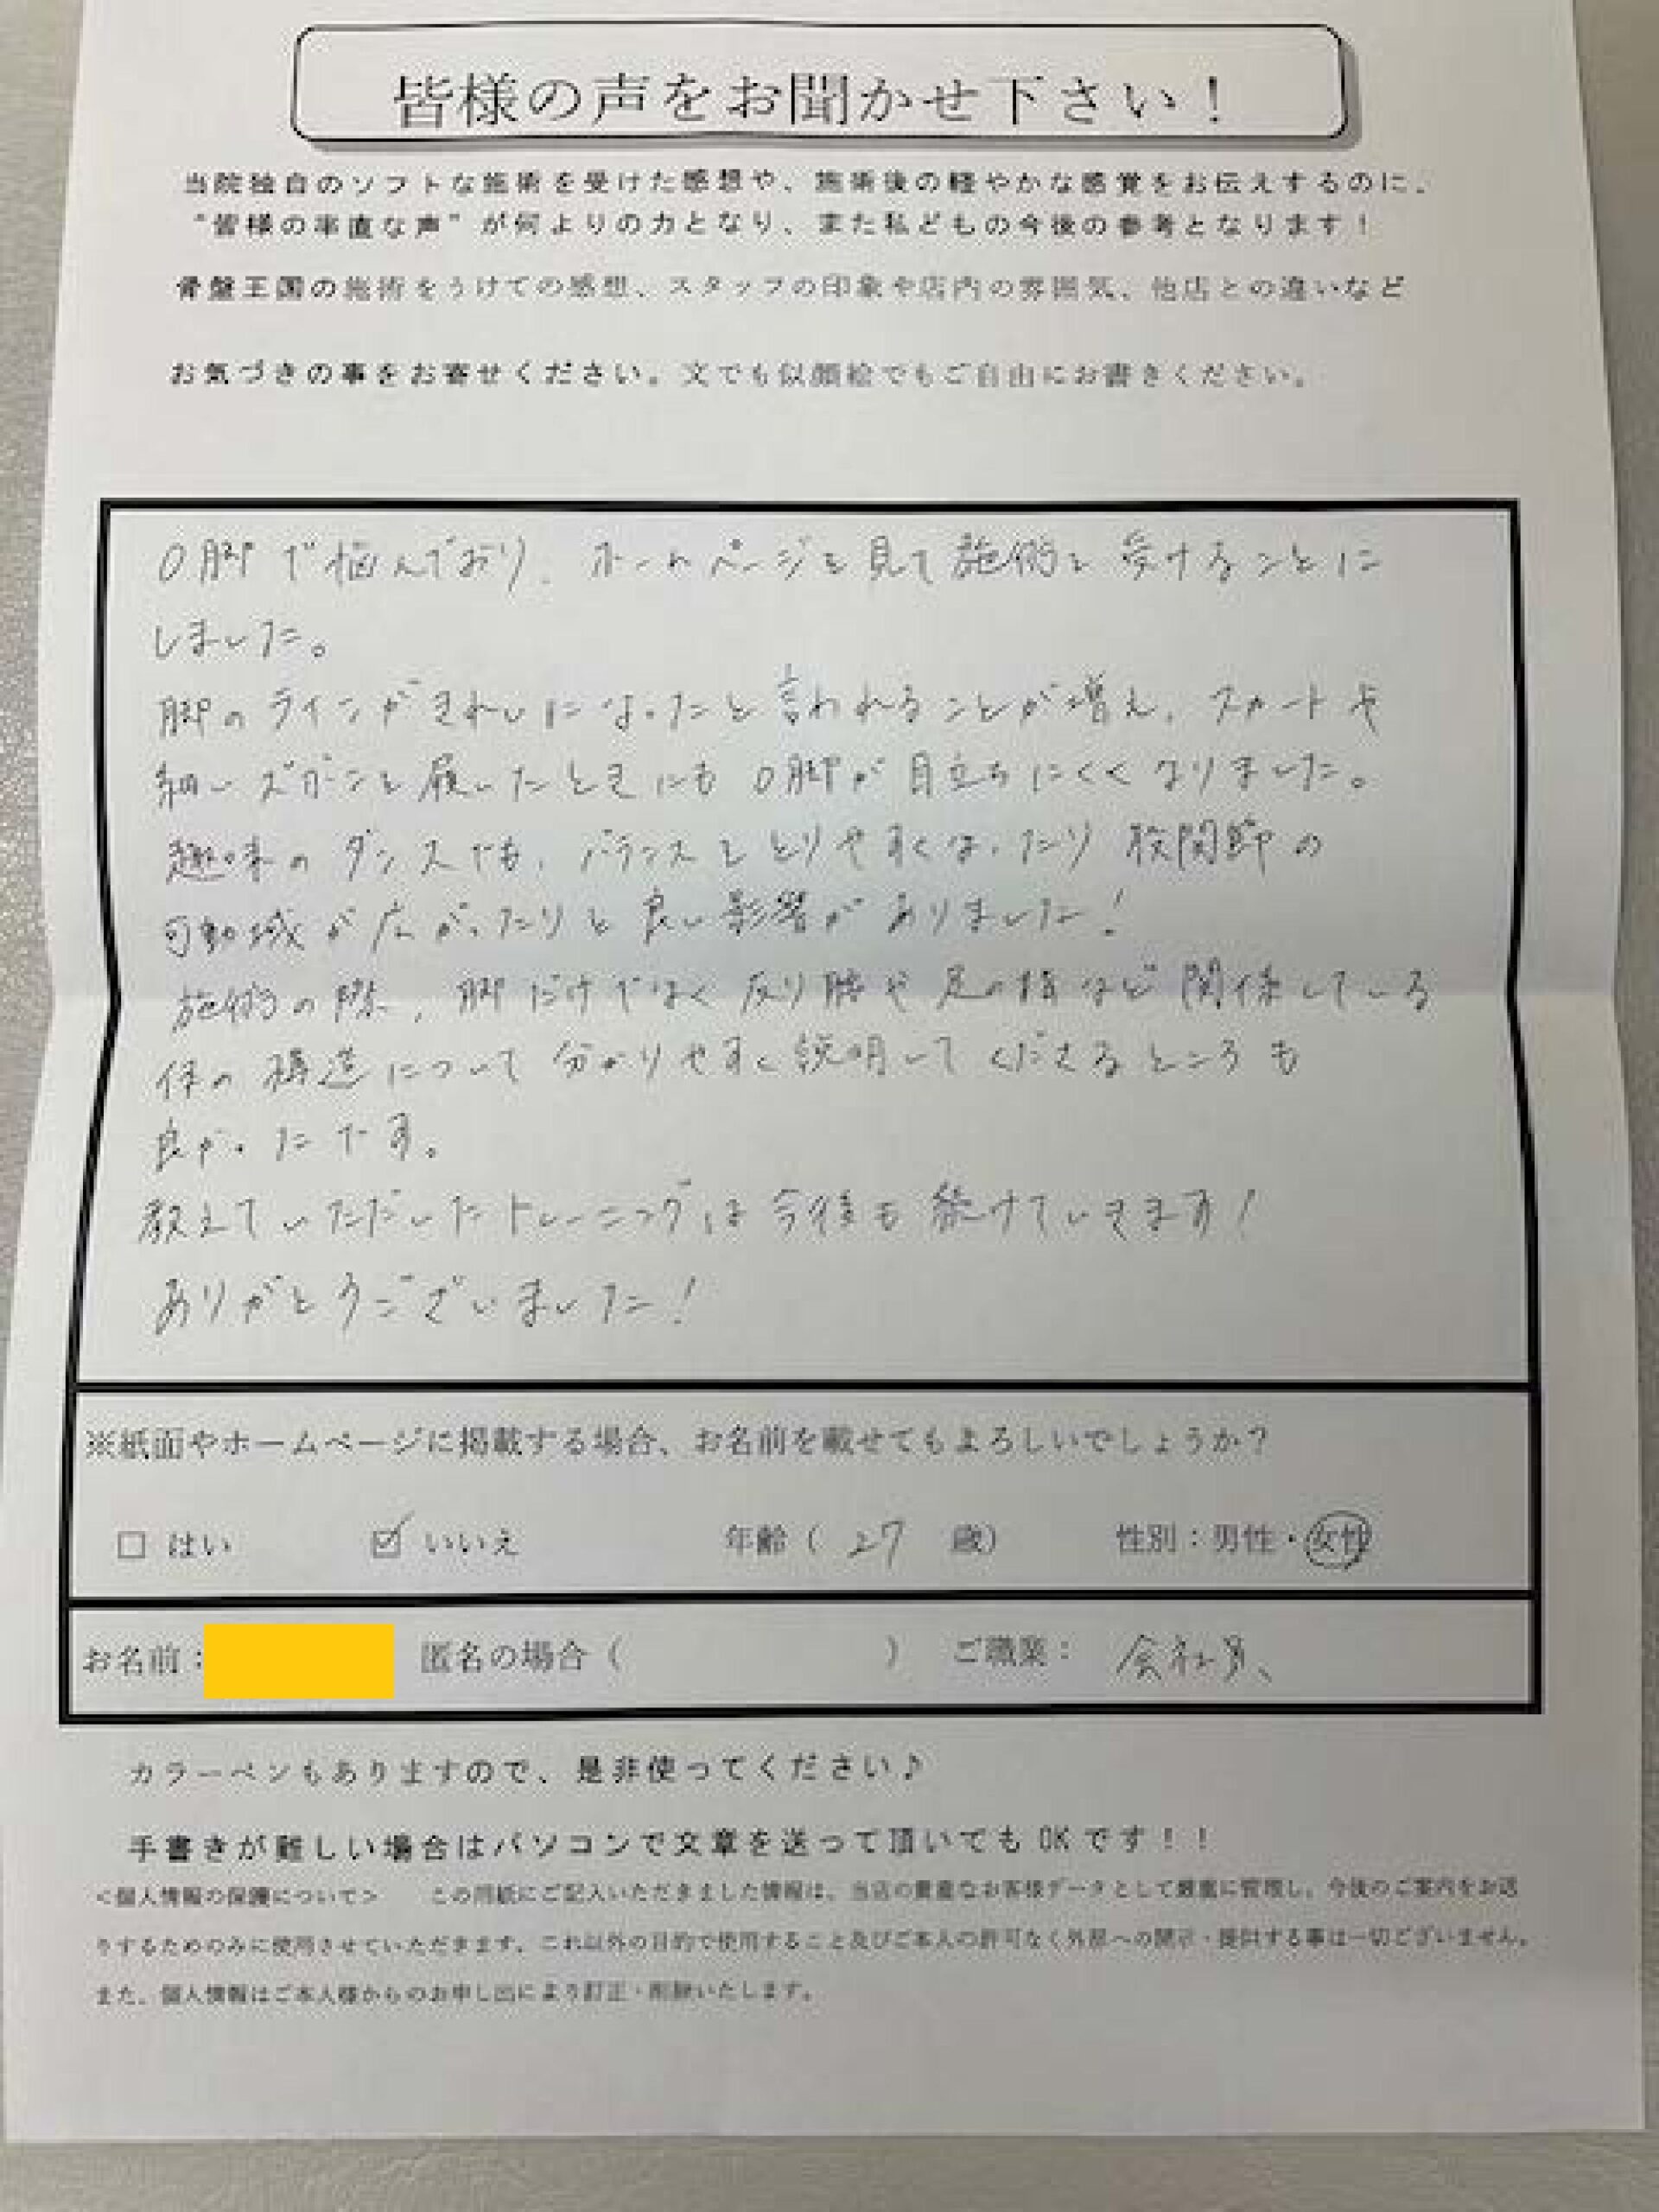 皆様の声をお聞かせ下さい！
当院独自のソフトな施術を受けた感想や、施術後の軽やかな感覚をお伝えするのに、
“皆様の率直な声”が何よりの力となり、また私どもの今後の参考となります！
骨盤王国の施術をうけての感想、スタッフの印象や店内の雰囲気、他店との違いなど
お気づきの事をお寄せください。文でも似顔絵でもご自由にお書きください。
O脚で悩んでおり、ホームページを見て施術を受けることに
しました。
脚のラインがきれいになったと言われることが増え、スカートや
細いズボンを履いたときにもO脚が目立ちにくくなりました。
趣味のダンスでも、バランスをとりやすくなったり股関節の
可動域が広がったりと良い影響がありました！
施術の際、脚だけでなく反り腰や足の指など関係している
体の構造について分かりやすく説明してくださるところも
良かったです。
教えていただいたトレーニングは今後も続けていきます！
ありがとうございました！
※紙面やホームページに掲載する場合、お名前を載せてもよろしいでしょうか？
□ はい ☑ いいえ 年齢（ 27 歳） 性別：男性・女性
お名前： 匿名の場合（ ） ご職業： 会社員
カラーペンもありますので、是非使ってください♪
手書きが難しい場合はパソコンで文章を送って頂いてもOKです！！
＜個人情報の保護について＞ この用紙にご記入いただきました情報は、当店の貴重なお客様データとして厳重に管理し、今後のご案内をお送
りするためのみに使用させていただきます。これ以外の目的で使用すること及びご本人の許可なく外部への開示・提供する事は一切ございません。
また、個人情報はご本人様からのお申し出により訂正・削除いたします。